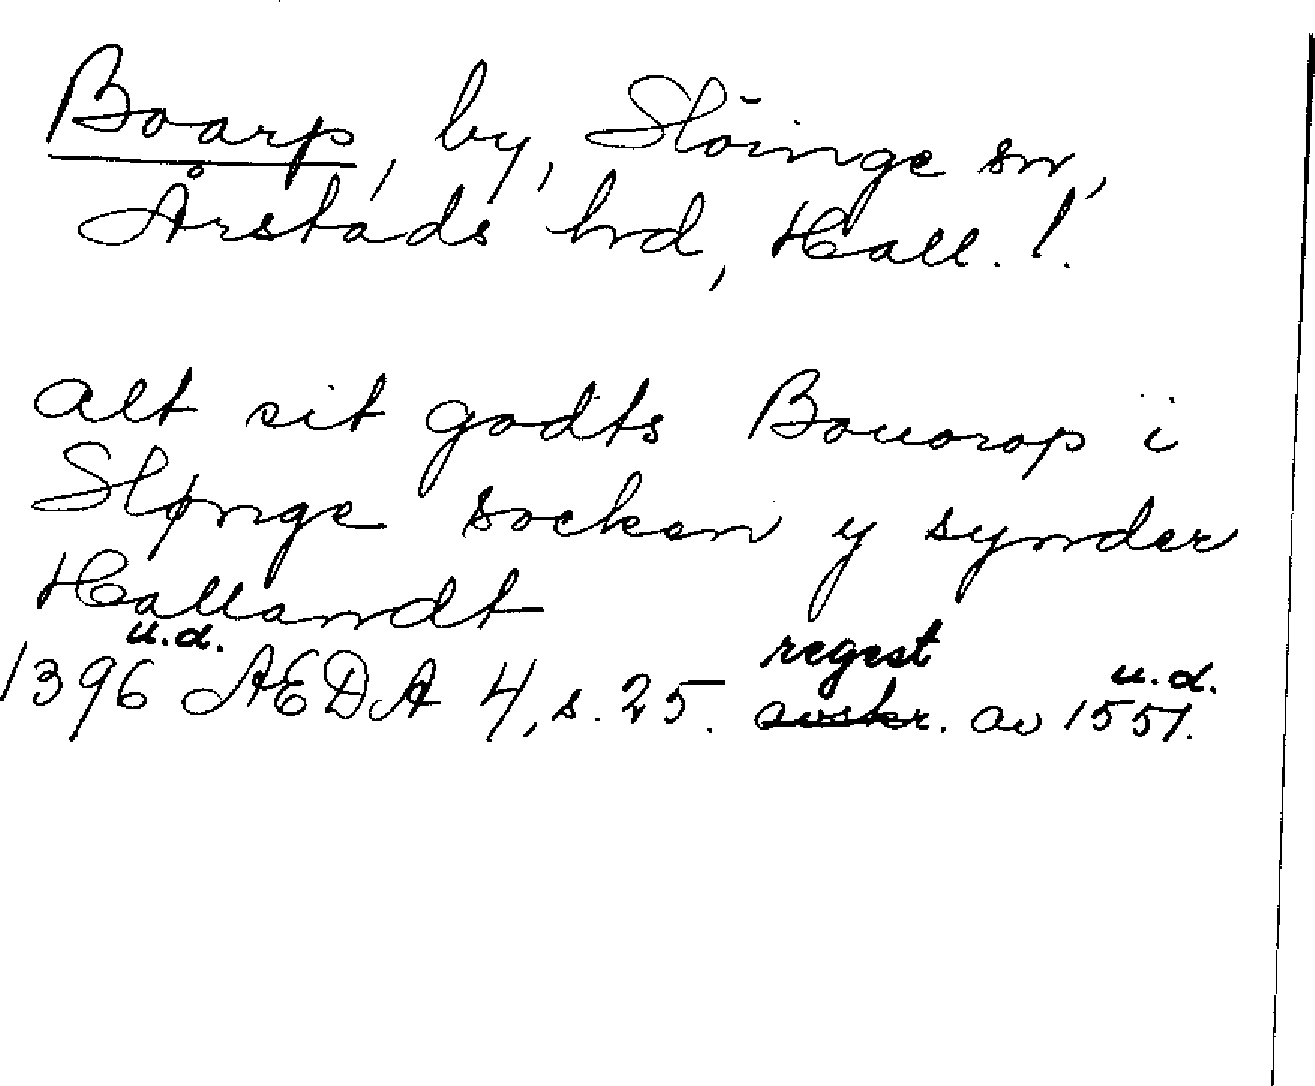 Boarp, by, Slöinge sn,
Årstads hrd, Hall. l.
alt sit godts Bouorop i
Slønge socken y synder
Hallandt
u.d. regest u.d.
1396 AEDA 4, s. 25. avskr. av 1551.